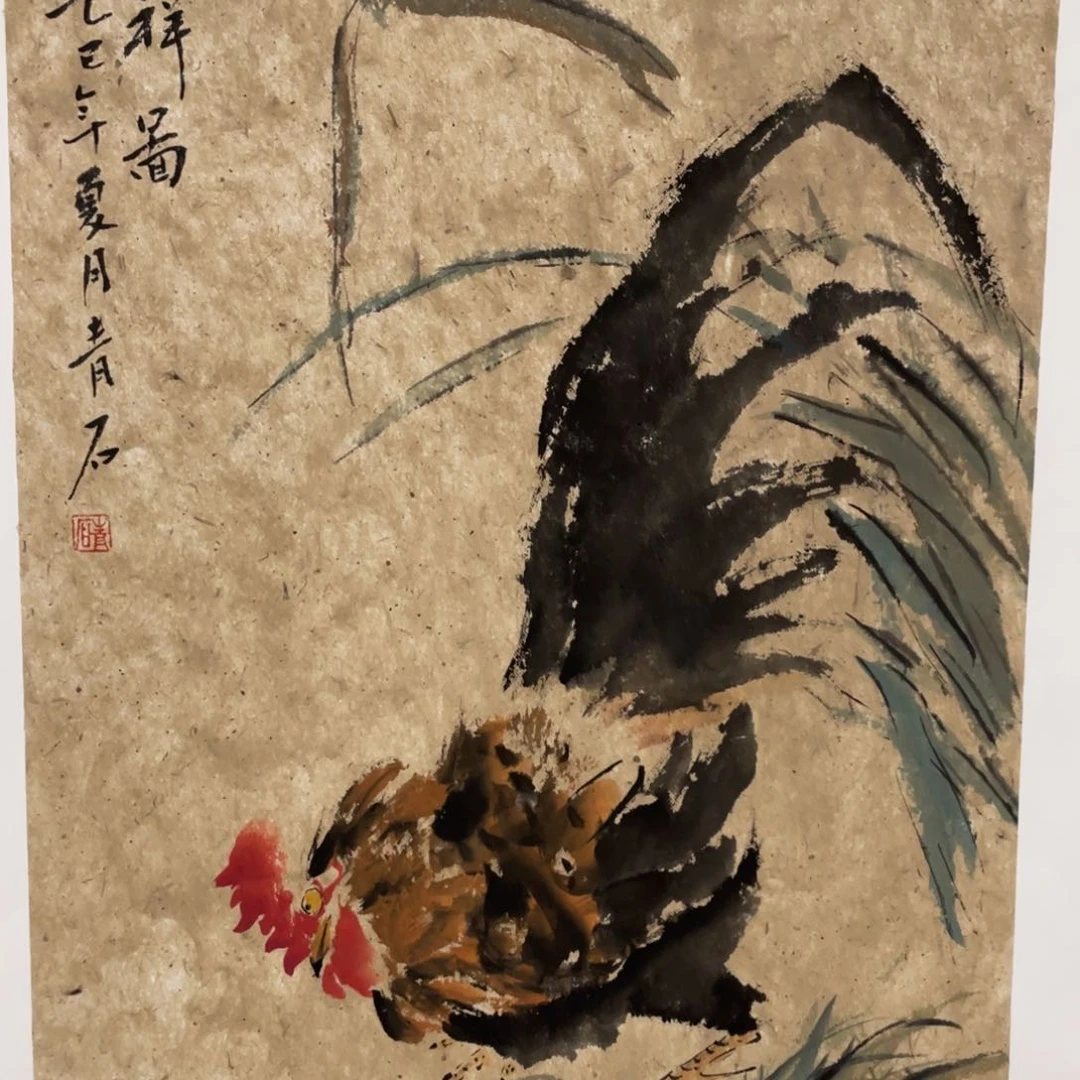 祥圖
乙巳年夏月青石
青石